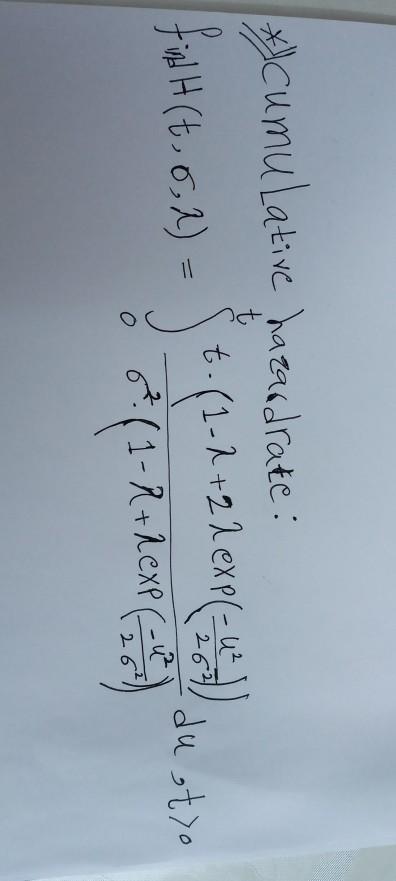 *) Cumulative hazard rate:
find H(t, σ, λ) = ∫₀ᵗ t·(1-λ+2λexp(-u²/2σ²)) / σ²·(1-λ+λexp(-u²/2σ²)) du , t>0